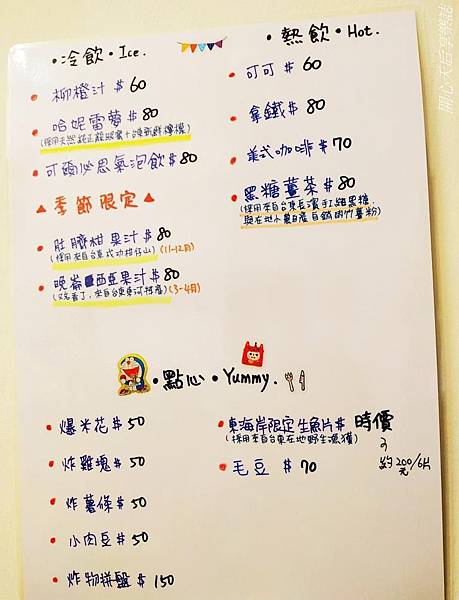 •冷飲•Ice.
柳橙汁 $60
哈妮雷夢 $80
(採用天然純正龍眼蜜+台東新鮮檸檬)
可爾必思氣泡飲$80
▲季節限定▲
肚臍柑果汁$80
(採用來自台東成功柑仔山) (11-12月)
晚崙西亞果汁$80
(又名香丁,來自台東東河特產) (3-4月)
•熱飲•Hot.
可可 $60
拿鐵 $80
美式咖啡 $70
黑糖薑茶 $80
(採用來自台東長濱手工細黑糖
與在地小農日產自銷的竹薑粉)
•點心•Yummy.
爆米花 $50
炸雞塊 $50
炸薯條 $50
小肉豆 $50
炸物拼盤 $150
東海岸限定生魚片$ 時價
(採用來自台東在地野生漁獲)
約200元/6片
毛豆 $70
開心大吉享樂誌